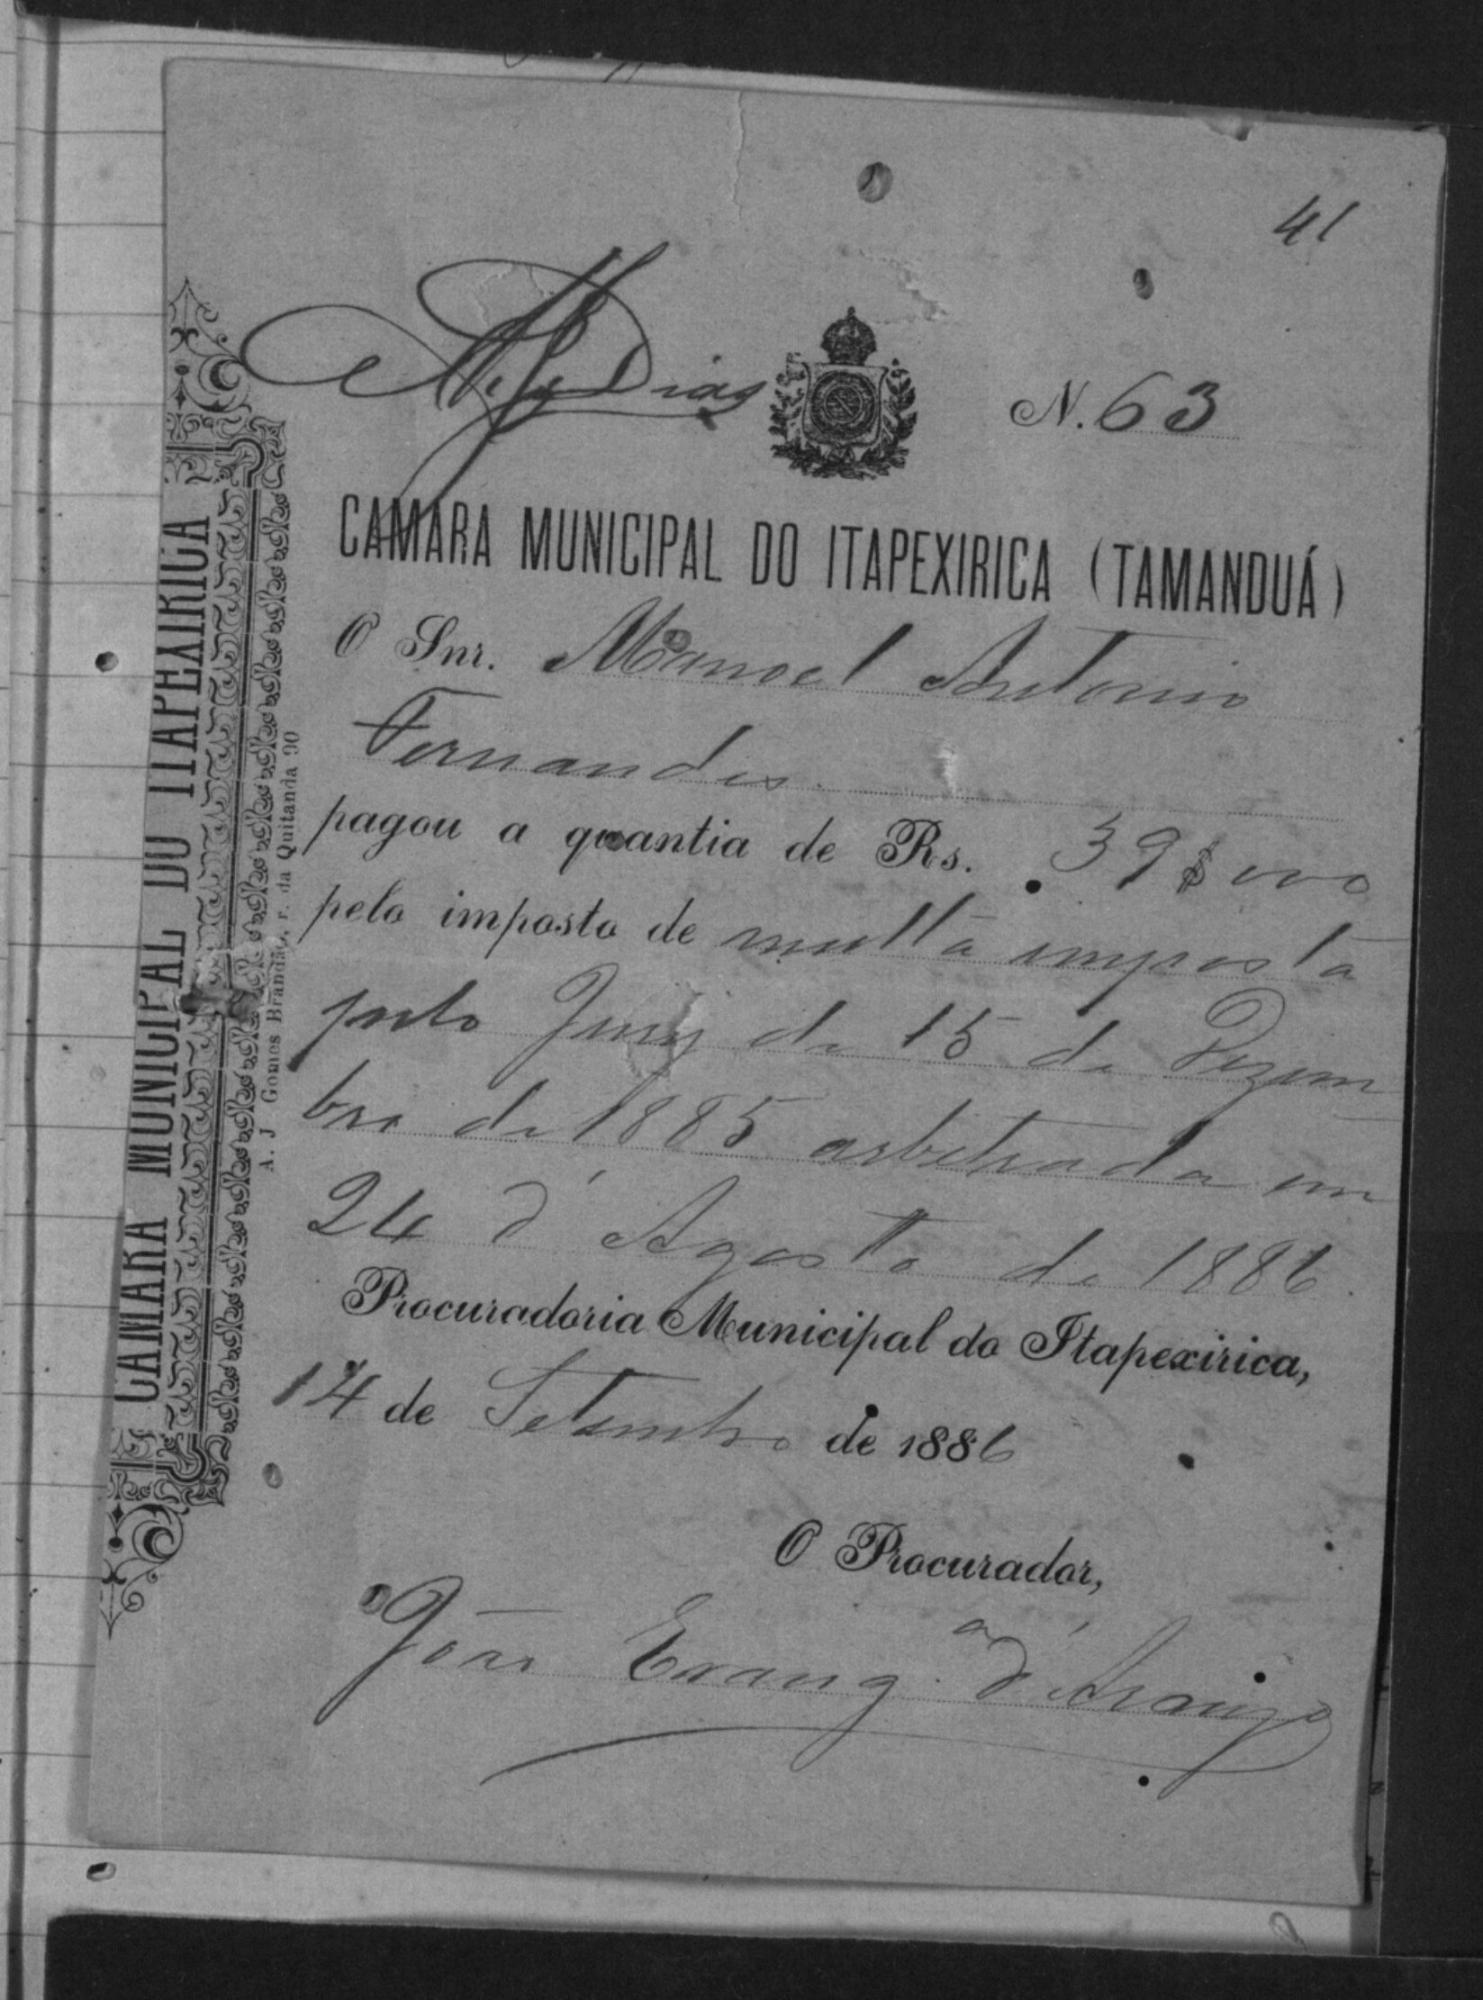 41
Dias
N. 63
CAMARA MUNICIPAL DO ITAPEXIRICA (TAMANDUÁ)
O Snr. Manoel Antonio
Fernandes
pagou a quantia de Rs. 39$000
pelo imposto de multa imposta
pelo Jury de 15 de Dezem
bro de 1885 arbitrada em
24 d'Agosto de 1886.
Procuradoria Municipal do Itapexirica,
14 de Setembro de 1886
O Procurador,
João Evang.ª d'Araujo
CAMARA MUNICIPAL DO ITAPEXIRICA
A. J Gomes Brandão, r. da Quitanda 90